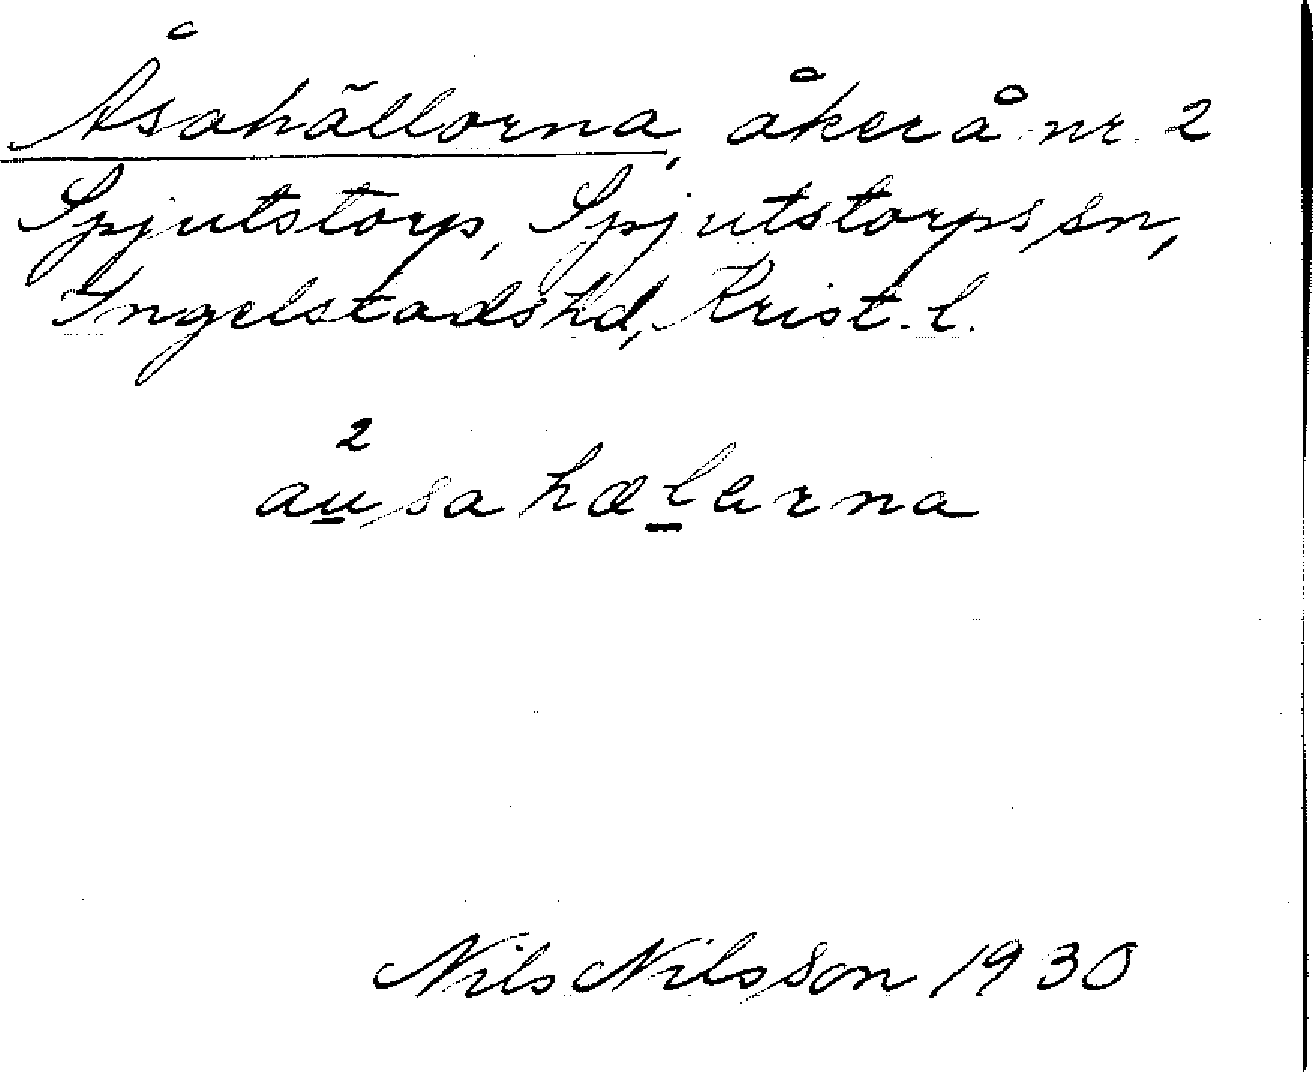 Åsahällorna, åker å nr. 2
Spjutstorp, Spjutstorps sn,
Ingelstads hd, Krist. l.
2
au̲sahæl̲arna
Nils Nilsson 1930